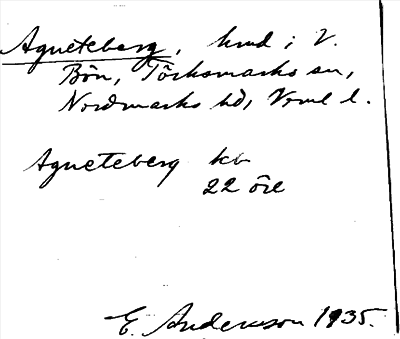 Agneteberg, hmd i V.
Bön, Töcksmarks sn,
Nordmarks hd, Vrml l.
Agneteberg kb
22 öre
E. Anderson 1935.